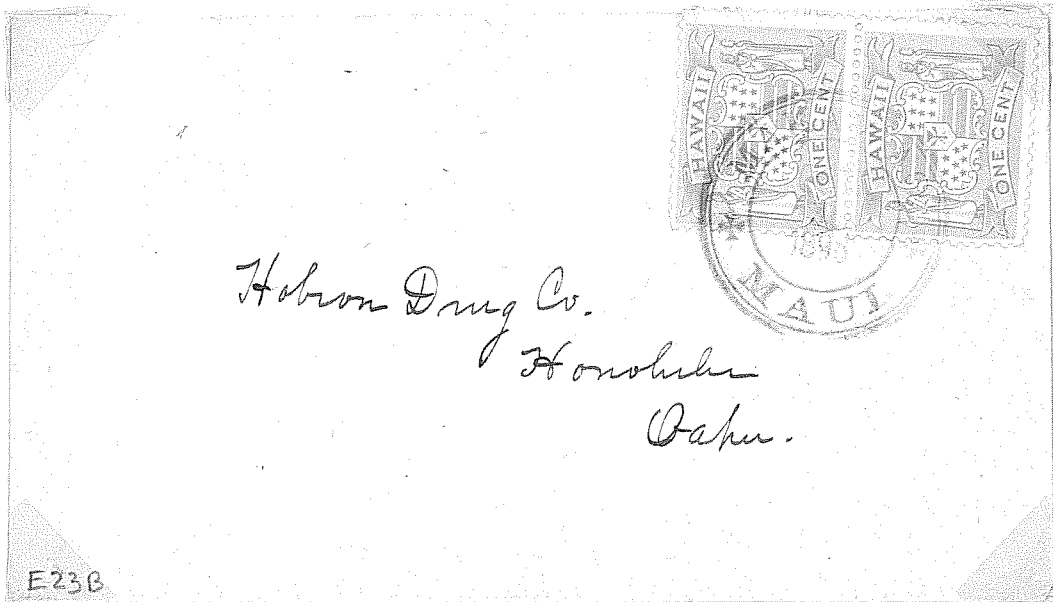 HAWAII
ONE CENT
HAWAII
ONE CENT
MAUI
Hobron Drug Co.
Honolulu
Oahu.
E23B